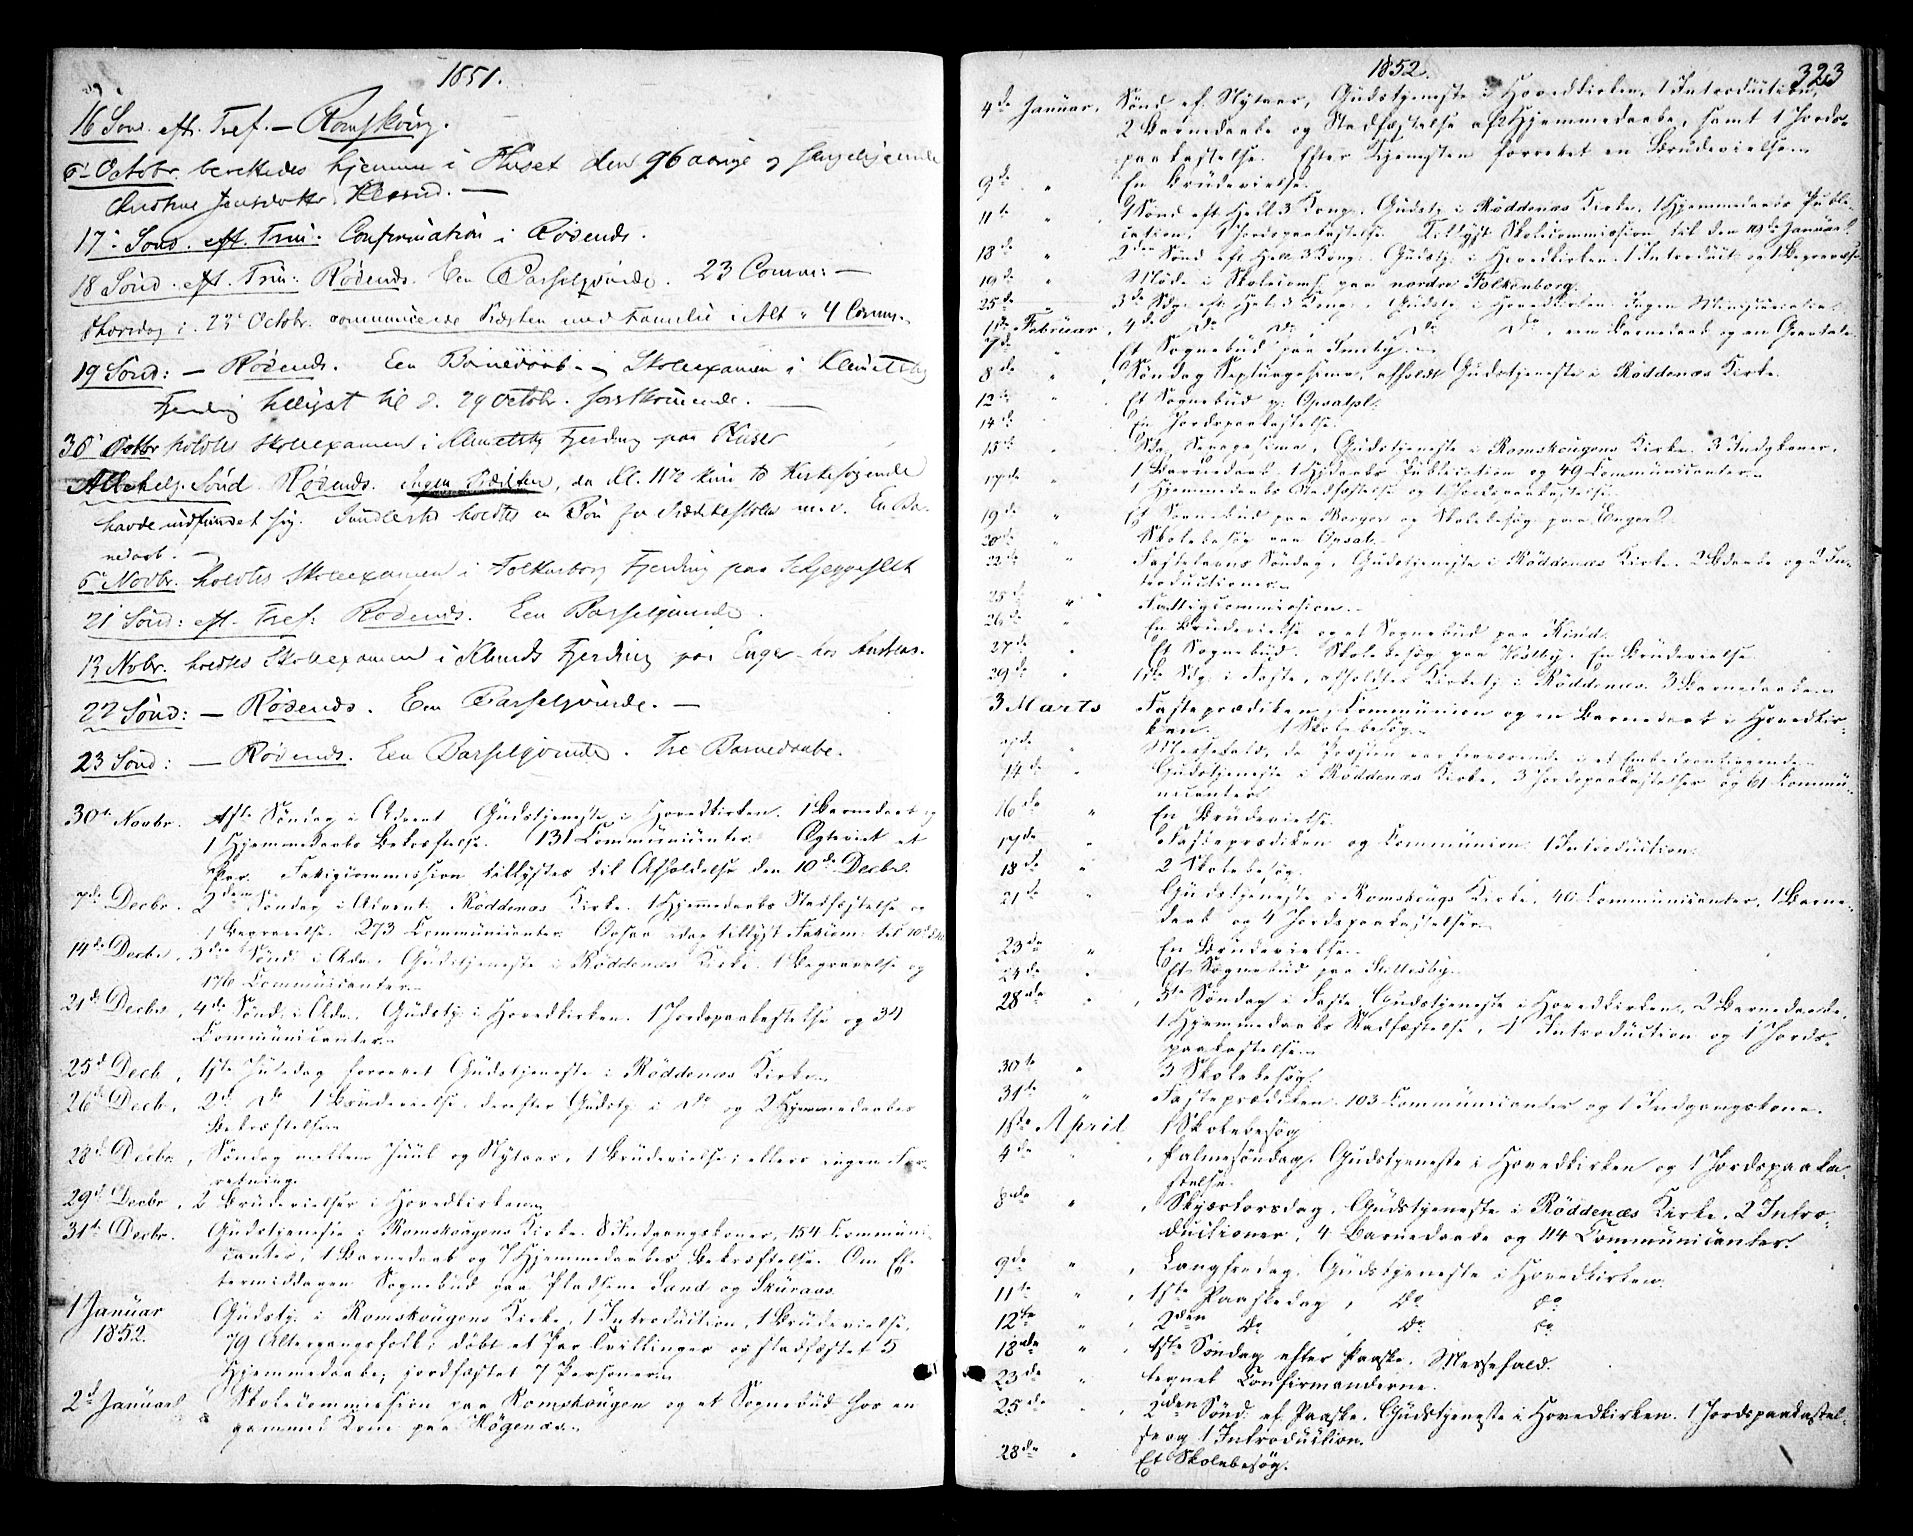 1851.
16 Sønd. eft. Tref. — Romskoug.
6te Octobr. berettedes hjemme i Huset den 96 aarige og sengeliggende
17de Sønd. eft. Trin: Confirmation i Rødenæs.
18 Sønd. eft. Trin: Rødenæs. Een Barselqvinde. 23 Comm: —
Thorsdag d. 23de Octobr. communicerede Præsten med Familie i Alt 4 Comm.
19 Sønd: — Rødenæs. Een Barnedaab. — Skoleexamen i
Fjerding tillyst til d. 29 Octobr. førstkommende. —
30te Octbr holdtes Skoleexamen i Fjerding paa
Allehelg. Sønd. Rødenæs. Ingen Prædiken, da Kl. 11½ kun 10 Kirkesøgende
havde indfundet sig. Imidlertid holdtes en Bøn fra Prædikestolen med. En Bar-
nedaab. —
6te Novbr. holdtes Skoleexamen i Folkenborg Fjerding paa
21 Sønd: eft. Tref: Rødenæs. Een Barselqvinde.
13 Novbr. holdtes Skoleexamen i Fjerding paa Enger hos Andreas.
22 Sønd: — Rødenæs. Een Barselqvinde. —
23 Sønd: — Rødenæs. Een Barselqvinde. Tre Barnedaabe.
30te Novbr. 1ste Søndag i Advent Gudstjeneste i Hovedkirken. 1 Barnedaab og
1 Hjemmedaabs Bekræftelse. 131 Communicanter. Ægteviet et
Par. Fatigcommission tillystes til Afholdelse den 10de Decbr.
7de Decbr. 2den Søndag i Advent. Røddenæs Kirke. 1 Hjemmedaabs Stadfæstelse og
1 Begravelse. 273 Communicanter. idag tillyst Fatcom. til 10de
14de Decbr. 3die Sønd. i Adv. Gudstjeneste i Røddenæs Kirke. 1 Begravelse og
176 Communicanter.
21de Decbr. 4de Sønd. i Adv. Gudstj. i Hovedkirken. 1 Jordspaakastelse og 34
Communicanter.
25de Decb. 1ste Juledag forrettet Gudstjeneste i Røddenæs Kirke.
26de Decb. 2d. Do 1 Brudevielse, derefter Gudstj. i Do og 2 Hjemmedaabes
Bekræftelse.
28de Decbr. Søndag mellem Juul og Nytaar, 1 Brudevielse; ellers ingen For-
retning.
29de Decbr. 2 Brudevielser i Hovedkirken.
31te Decbr. Gudstjeneste i Romskougens Kirke. 8 Indgangskoner, 154 Communi-
canter, 1 Barnedaab og 7 Hjemmedaabes Bekræftelse. Om Ef-
termiddagen Sognebud paa Pladsene Sand og Skuraas.
1 Januar Gudstj. i Romskougens Kirke, 1 Introduction, 1 Brudevielse,
1852. 79 Altergangsfolk; døbt et Par Tvillinger og stadfæstet 5
Hjemmedaabe; jordfæstet 7 Personer.
2d Januar Skolecommission paa Romskougen og et Sognebud hos en
gammel Kone paa Høgenæs.
1852.
323
4de Januar, Sønd. ef. Nytaar, Gudstjeneste i Hovedkirken, 1 Introduction,
2 Barnedaabe og Stadfæstelse af Hjemmedaabe, samt 1 Jords-
paakastelse. Efter Tjenesten forrettet en Brudevielse.
9de " En Brudevielse.
11te " 1 Sønd. eft. Hell. 3 Kong. Gudstj. i Røddenæs Kirke. 1 Hjemmedaabs Publi-
cation, 1 Jordspaakastelse. Tillyst Skolecommission til den 19de Januar.
18de " 2den Sønd. eft. Hell. 3 Kong. Gudstj. i Hovedkirken. 1 Introduct. og 1 Begravelse
19de " Møde i Skolecoms. paa nordre Folkenborg.
25de " 3de Sdg. eft. Hel. 3 Kong. Gudstj. i Hovedkirken. Ingen
1ste Februar, 4de Do Do Do Do, een Barnedaab og en
7de " Et Sognebud paa
8de " Søndag Septuagesima, afholdt Gudstjeneste i Røddenæs Kirke.
12te " Et Sognebud p.
14de " En Jordspaakastelse.
15de " Sdg. Sexagesima, Gudstjeneste i Romskougens Kirke. 3 Indgkoner,
1 Barnedaab, 1 Hjdaabs Publication og 49 Communicanter.
17de " 1 Hjemmedaabs Stadfæstelse og 1 Jordspaakastelse.
19de " Et Sognebud paa og Skolebesøg paa Enger.
20de " Skolebesøg paa Opsal.
22de " Fastelavns Søndag, Gudstjeneste i Røddenæs Kirke. 2 Bdaabe og 2 In-
troductioner.
25de " Fattigcommission.
26de " En Brudevielse og et Sognebud paa
27de " Et Sognebud. Skolebesøg paa En Brudevielse.
29de " 1ste Sdg. i Faste, afholdtes Kirketj. i Røddenæs. 3 Barnedaabe.
3 Marts Fasteprædiken, Communion og en Barnedaab i Hovedkir-
ken. 1 Skolebesøg.
7de " Messefald, da Præsten var fraværende i et Embedsanliggende.
14de " Gudstjeneste i Røddenæs Kirke, 3 Jordspaakastelser og 61 Commu-
nicanter.
16de " En Brudevielse.
17de " Fasteprædiken og Communion. 1 Introduction.
18de " 2 Skolebesøg.
21de " Gudstjeneste i Romskougs Kirke. 40 Communicanter, 1 Barne-
daab og 4 Jordspaakastelser.
23de " En Brudevielse.
24de " Et Sognebud paa
28de " 5te Søndag i Faste, Gudstjeneste i Hovedkirken, 2 Barnedaabe,
1 Hjemmedaabs Stadfæstelse, 1 Introduction og 1 Jords-
paakastelse.
30te " 3 Skolebesøg.
31te " Fasteprædiken. 103 Communicanter og 1 Indgangskone.
1ste April 1 Skolebesøg
4de " Palmesøndag. Gudstjeneste i Hovedkirken og 1 Jordspaaka-
stelse.
8de " Skjærtorsdag, Gudstjeneste i Røddenæs Kirke. 2 Intro-
ductioner, 4 Barnedaabe og 114 Communicanter.
9de " Langfredag. Gudstjeneste i Hovedkirken.
11te " 1ste Paaskedag, Do Do
12te " 2den Do, Do Do
18de " 1ste Søndag efter Paaske. Messefald.
23de " tegnet Confirmanderne.
25de " 2den Sønd. ef. Paaske. Gudstjeneste i Hovedkirken. 1 Jordspaakastel-
se og 1 Introduction.
28de " Et Skolebesøg.